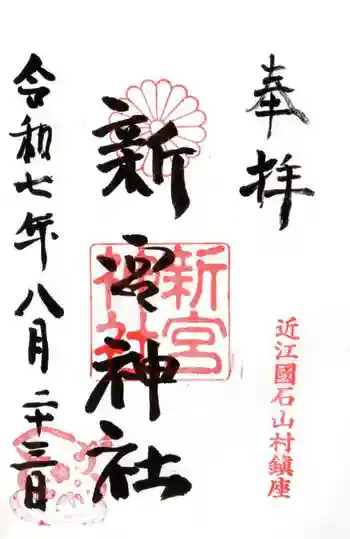 奉拝
近江國石山村鎮座
新宮神社
新宮神社
令和七年八月二十三日